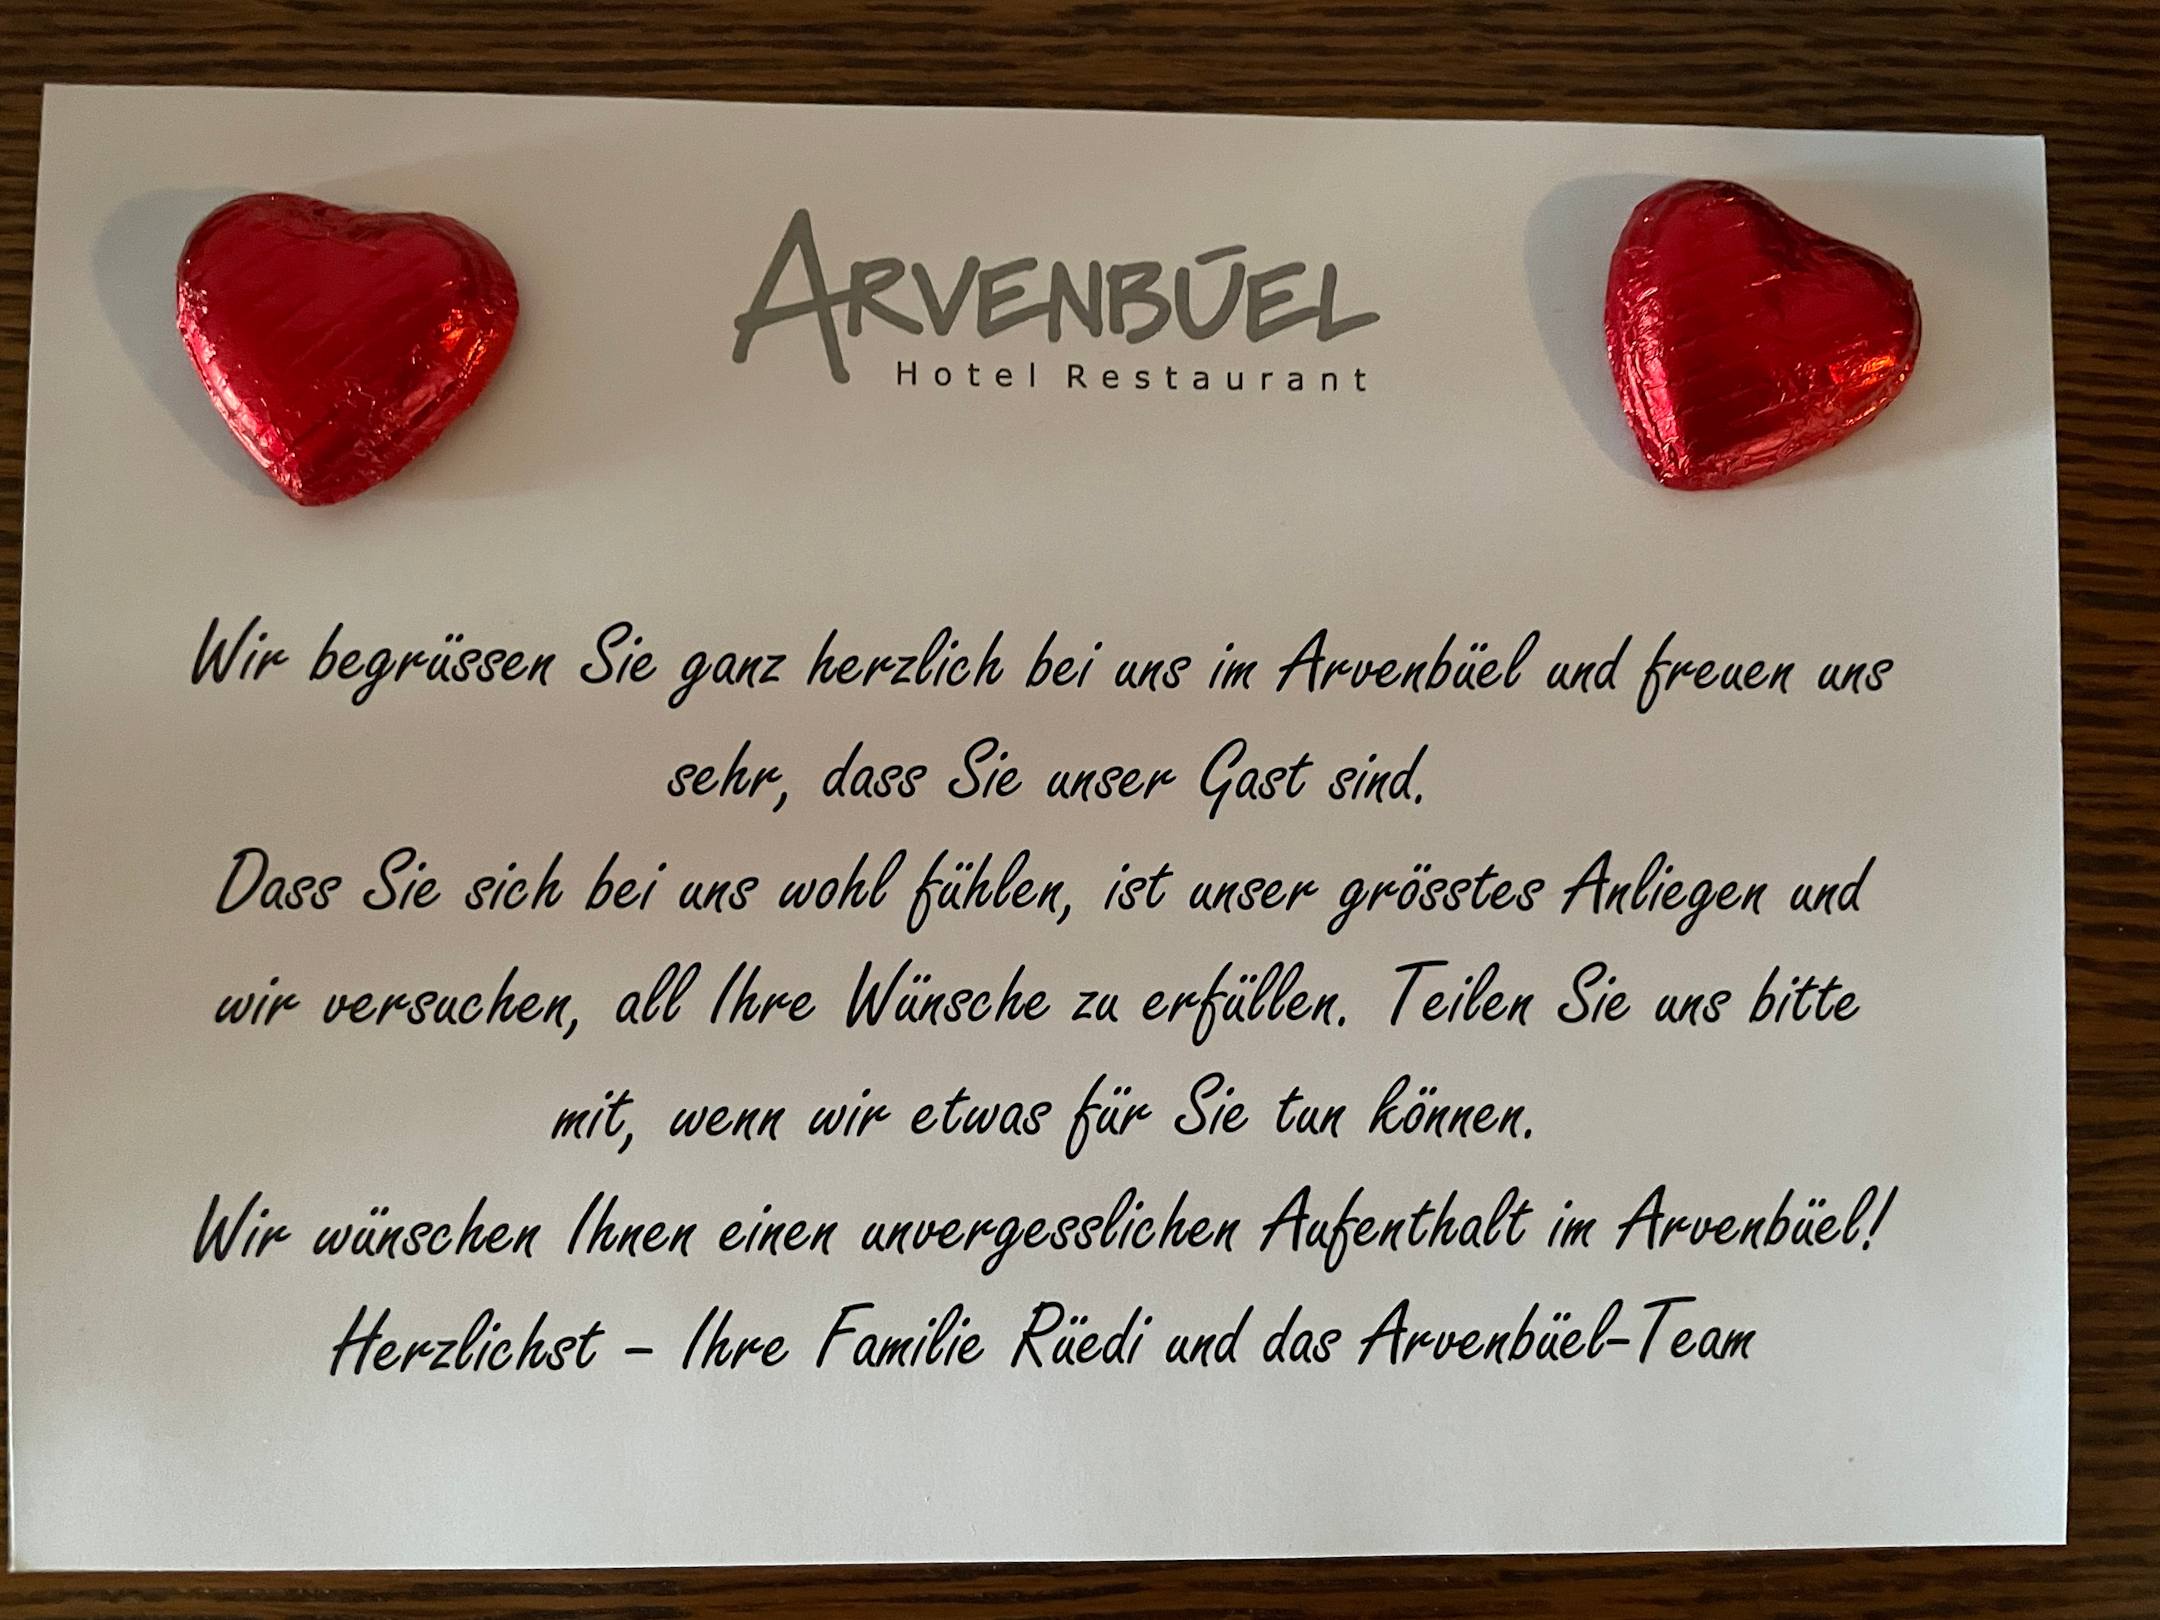 ARVENBÜEL
Hotel Restaurant
Wir begrüssen Sie ganz herzlich bei uns im Arvenbüel und freuen uns
sehr, dass Sie unser Gast sind.
Dass Sie sich bei uns wohl fühlen, ist unser grösstes Anliegen und
wir versuchen, all Ihre Wünsche zu erfüllen. Teilen Sie uns bitte
mit, wenn wir etwas für Sie tun können.
Wir wünschen Ihnen einen unvergesslichen Aufenthalt im Arvenbüel!
Herzlichst – Ihre Familie Rüedi und das Arvenbüel-Team